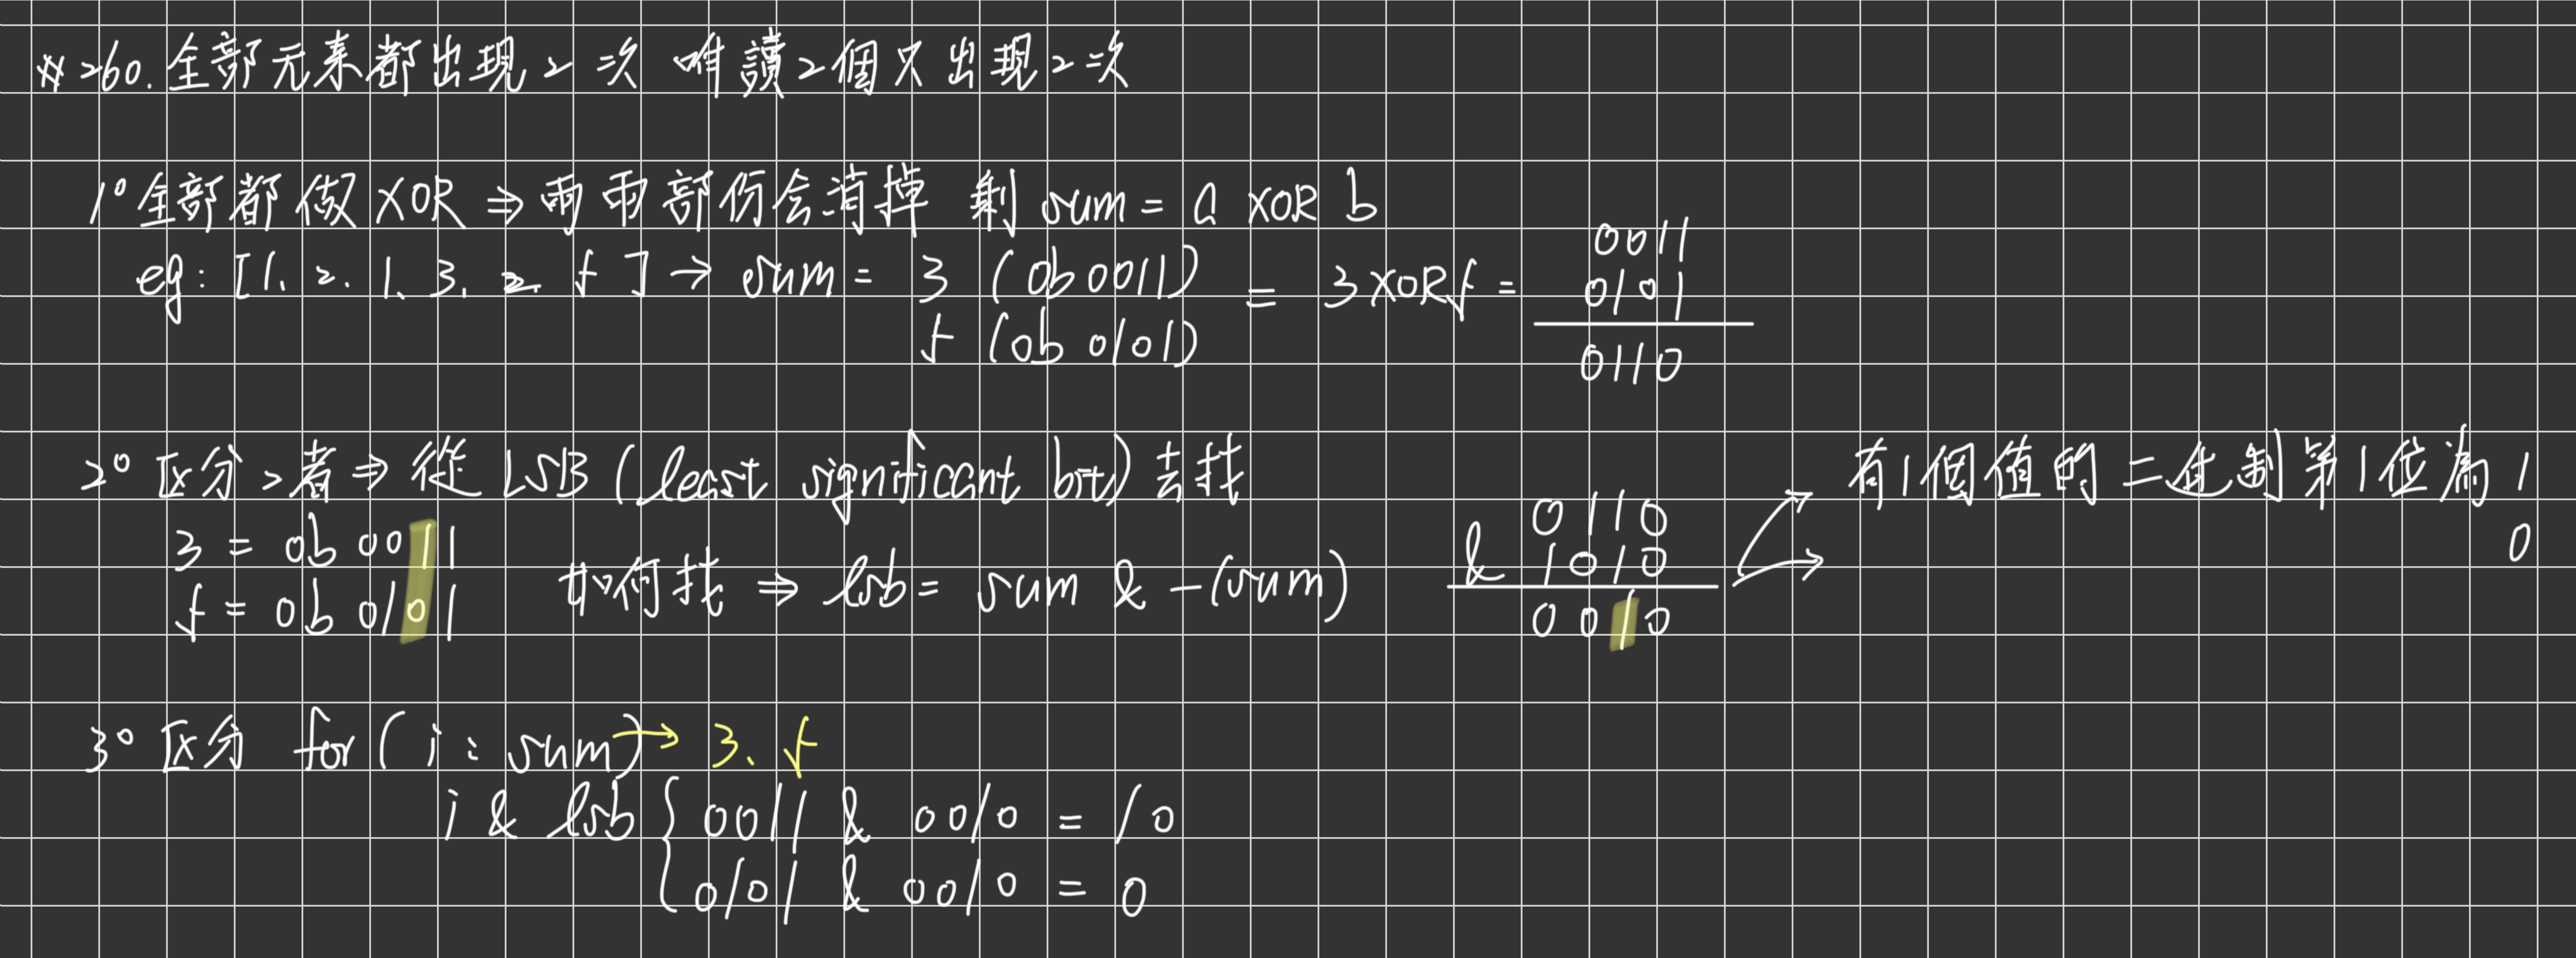 ※260. 全部元素都出現2次 唯讀2個只出現2次
1° 全部都做XOR ⇒ 兩兩部份会消掉 剩 sum = a XOR b
eg: [1, 2, 1, 3, 2, 5] → sum = 3 (0b0011) = 3 XOR 5 = 0011
5 (0b0101) 0101
0110
2° 区分2者 ⇒ 從 LSB (least significant bit) 去找
3 = 0b0011
5 = 0b0101
如何找 ⇒ lsb = sum & -(sum)
0110
& 1010
0010
有1個值的二進制第1位為1
0
3° 区分 for (i : sum) → 3, 5
i & lsb { 0011 & 0010 = 10
0101 & 0010 = 0